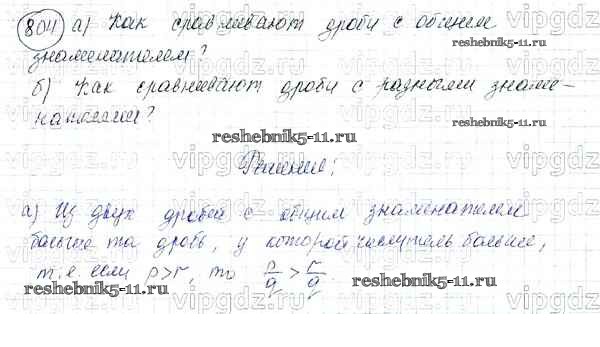 804 а) Как сравнивают дроби с общим
знаменателем?
б) Как сравнивают дроби с разными знаме-
нателями?
reshebnik5-11.ru
Решение:
а) Из двух дробей с общим знаменателем
больше та дробь, у которой числитель больше,
т.е если p>r, то p/q > r/q.